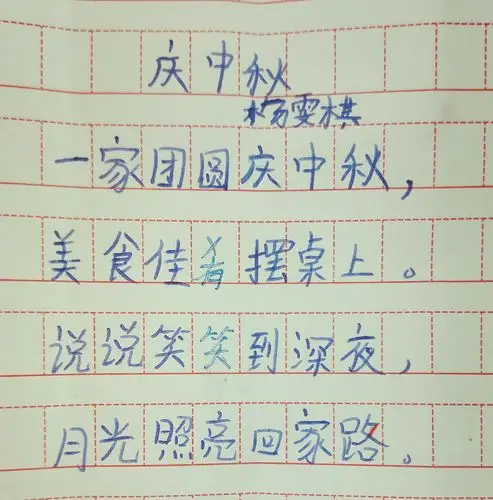 庆中秋
杨雯棋
一家团圆庆中秋，
美食佳肴摆桌上。
说说笑笑到深夜，
月光照亮回家路。